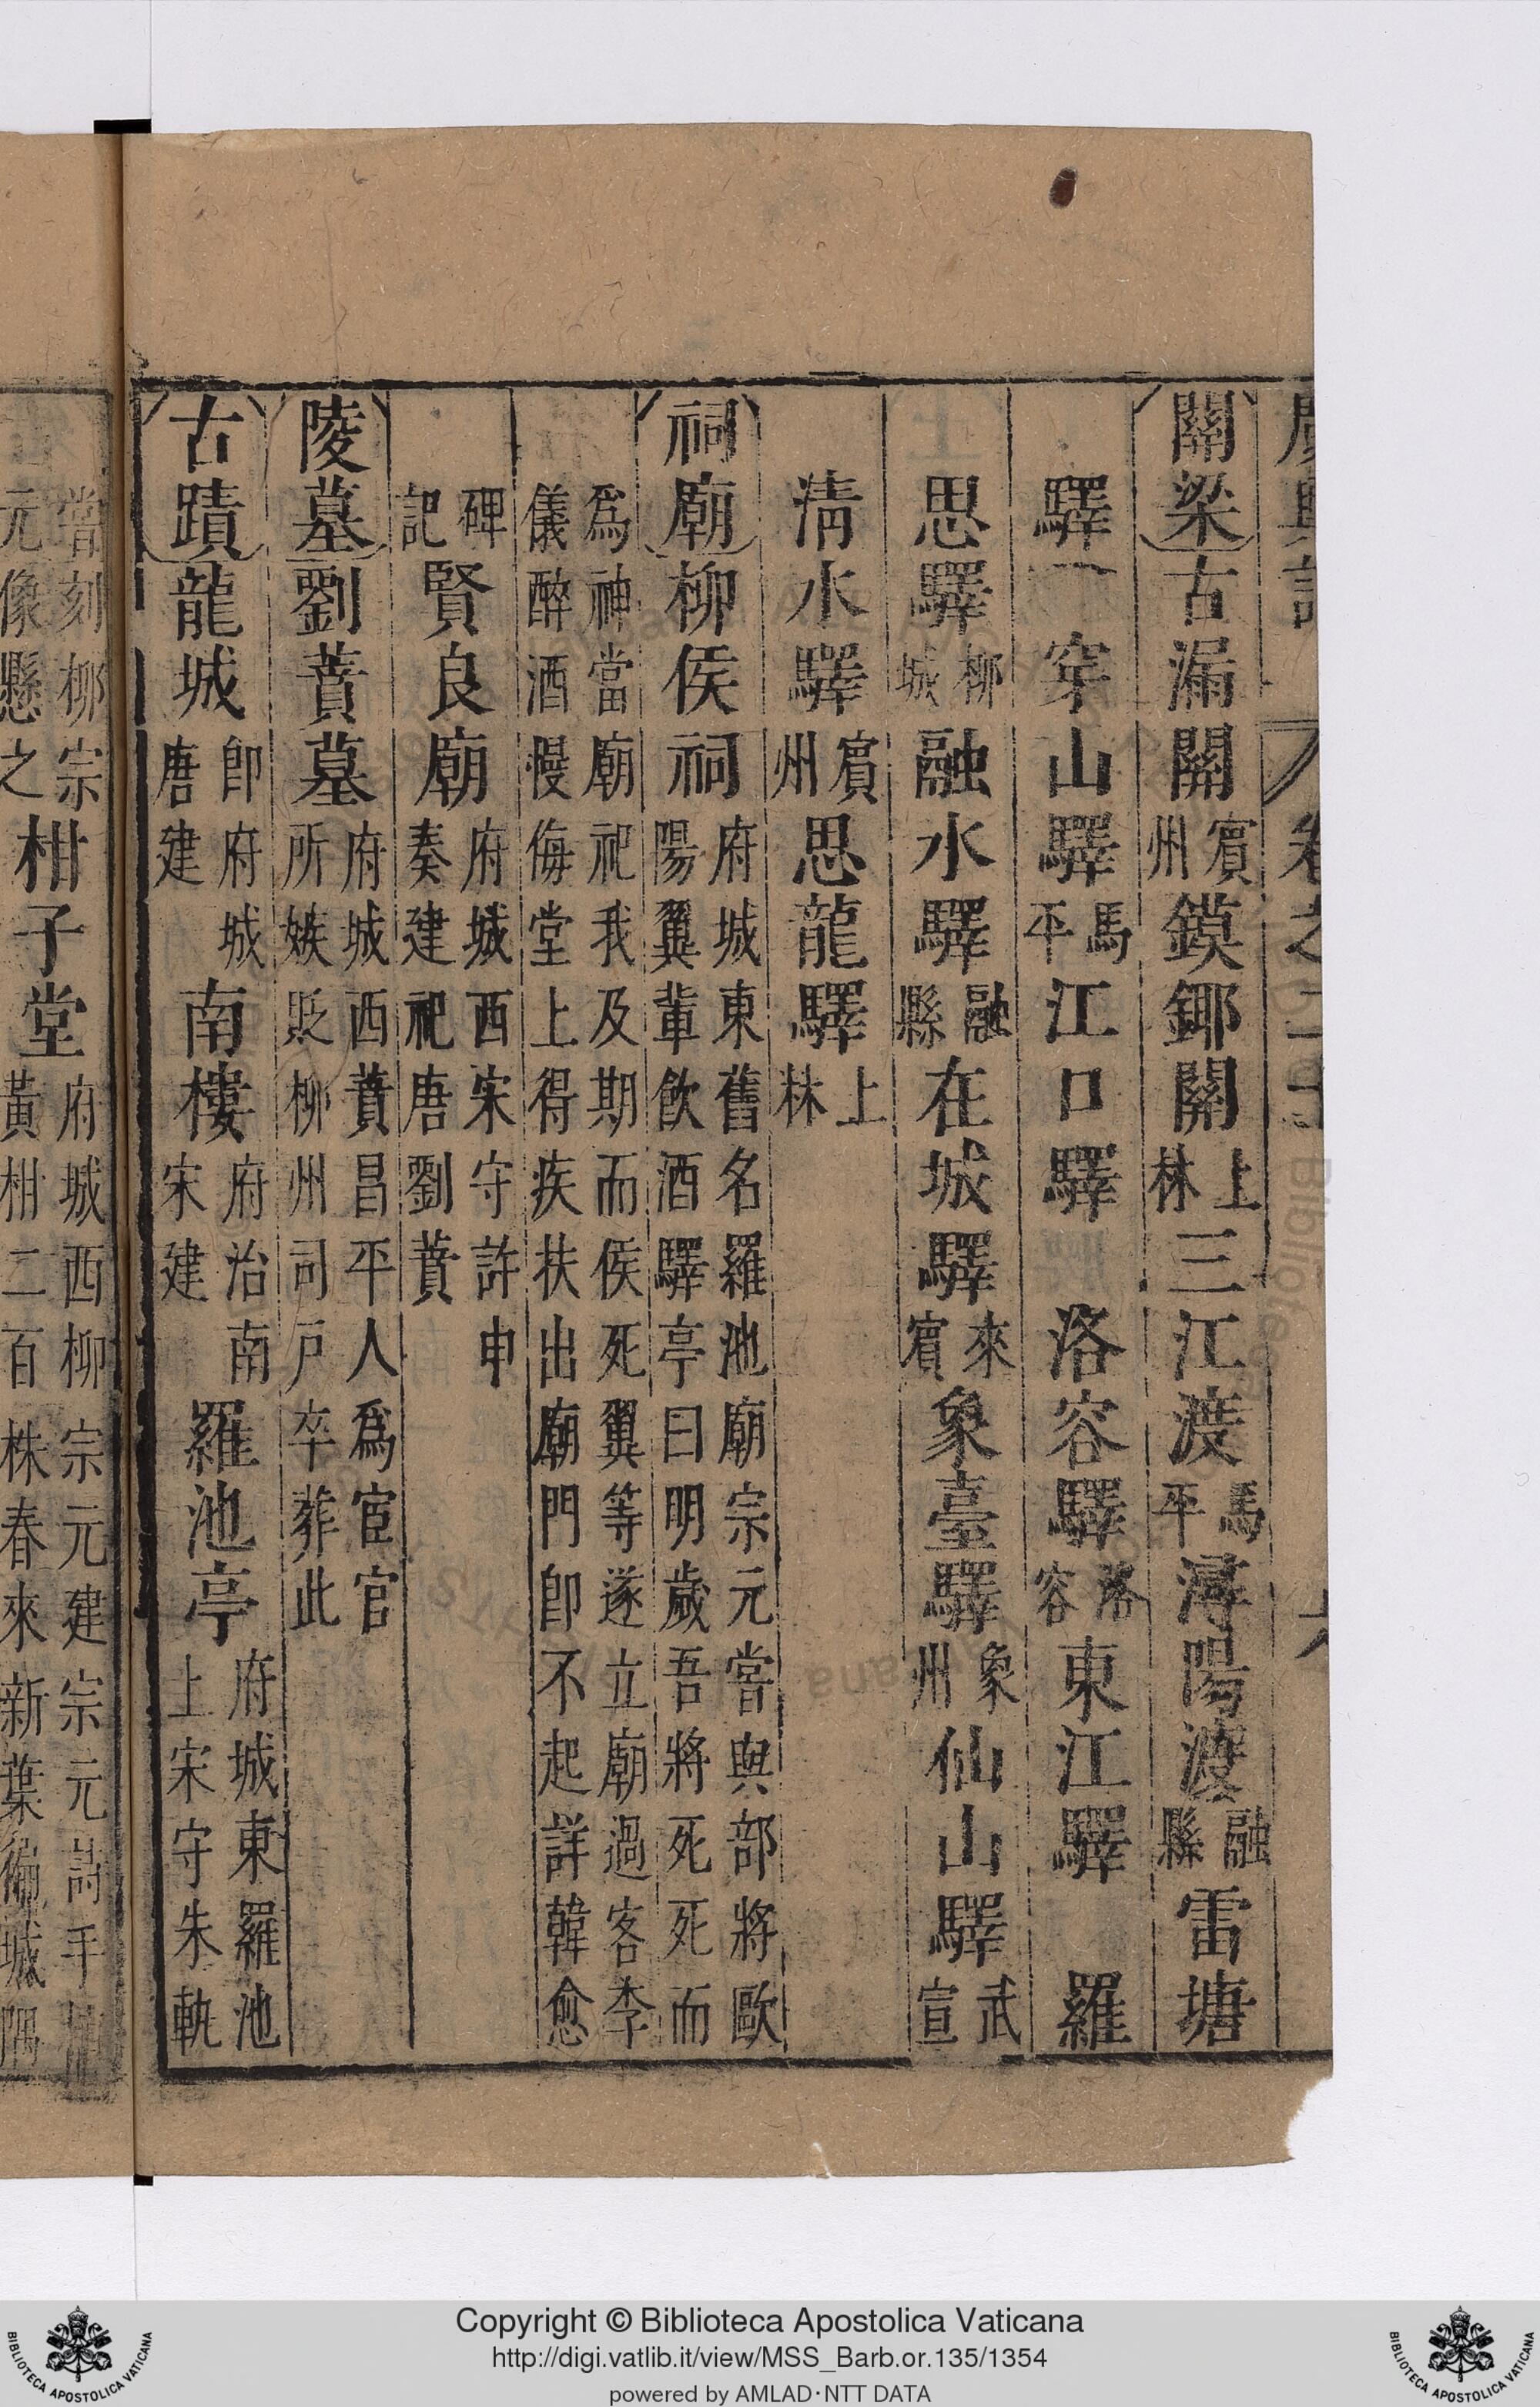 廣輿記 卷之二
關梁 古漏關 賓州 鏌鋣關 上林 三江渡 馬平 潯陽渡 融縣 雷塘
驛 穿山驛 馬平 江口驛 洛容驛 洛容 東江驛 羅
思驛 柳城 融水驛 融縣 在城驛 來賓 象臺驛 象州 仙山驛 武宣
清水驛 賓州 思龍驛 上林
祠廟 柳侯祠 府城東舊名羅池廟宗元嘗與部將歐陽翼輩飲酒驛亭曰明歲吾將死死而
爲神當廟祀我及期而侯死翼等遂立廟過客李儀醉酒慢侮堂上得疾扶出廟門卽不起詳韓愈
碑記 賢良廟 府城西宋守許申奏建祀唐劉蕡
陵墓 劉蕡墓 府城西蕡昌平人爲宦官所嫉貶柳州司戶卒葬此
古蹟 龍城 卽府城唐建 南樓 府治南宋建 羅池亭 府城東羅池上宋守朱軌
嘗刻柳宗元像懸之 柑子堂 府城西柳宗元建宗元詩手種黃柑二百株春來新葉徧城隅
Copyright © Biblioteca Apostolica Vaticana
http://digi.vatlib.it/view/MSS_Barb.or.135/1354
powered by AMLAD·NTT DATA
BIBLIOTECA APOSTOLICA VATICANA
BIBLIOTECA APOSTOLICA VATICANA